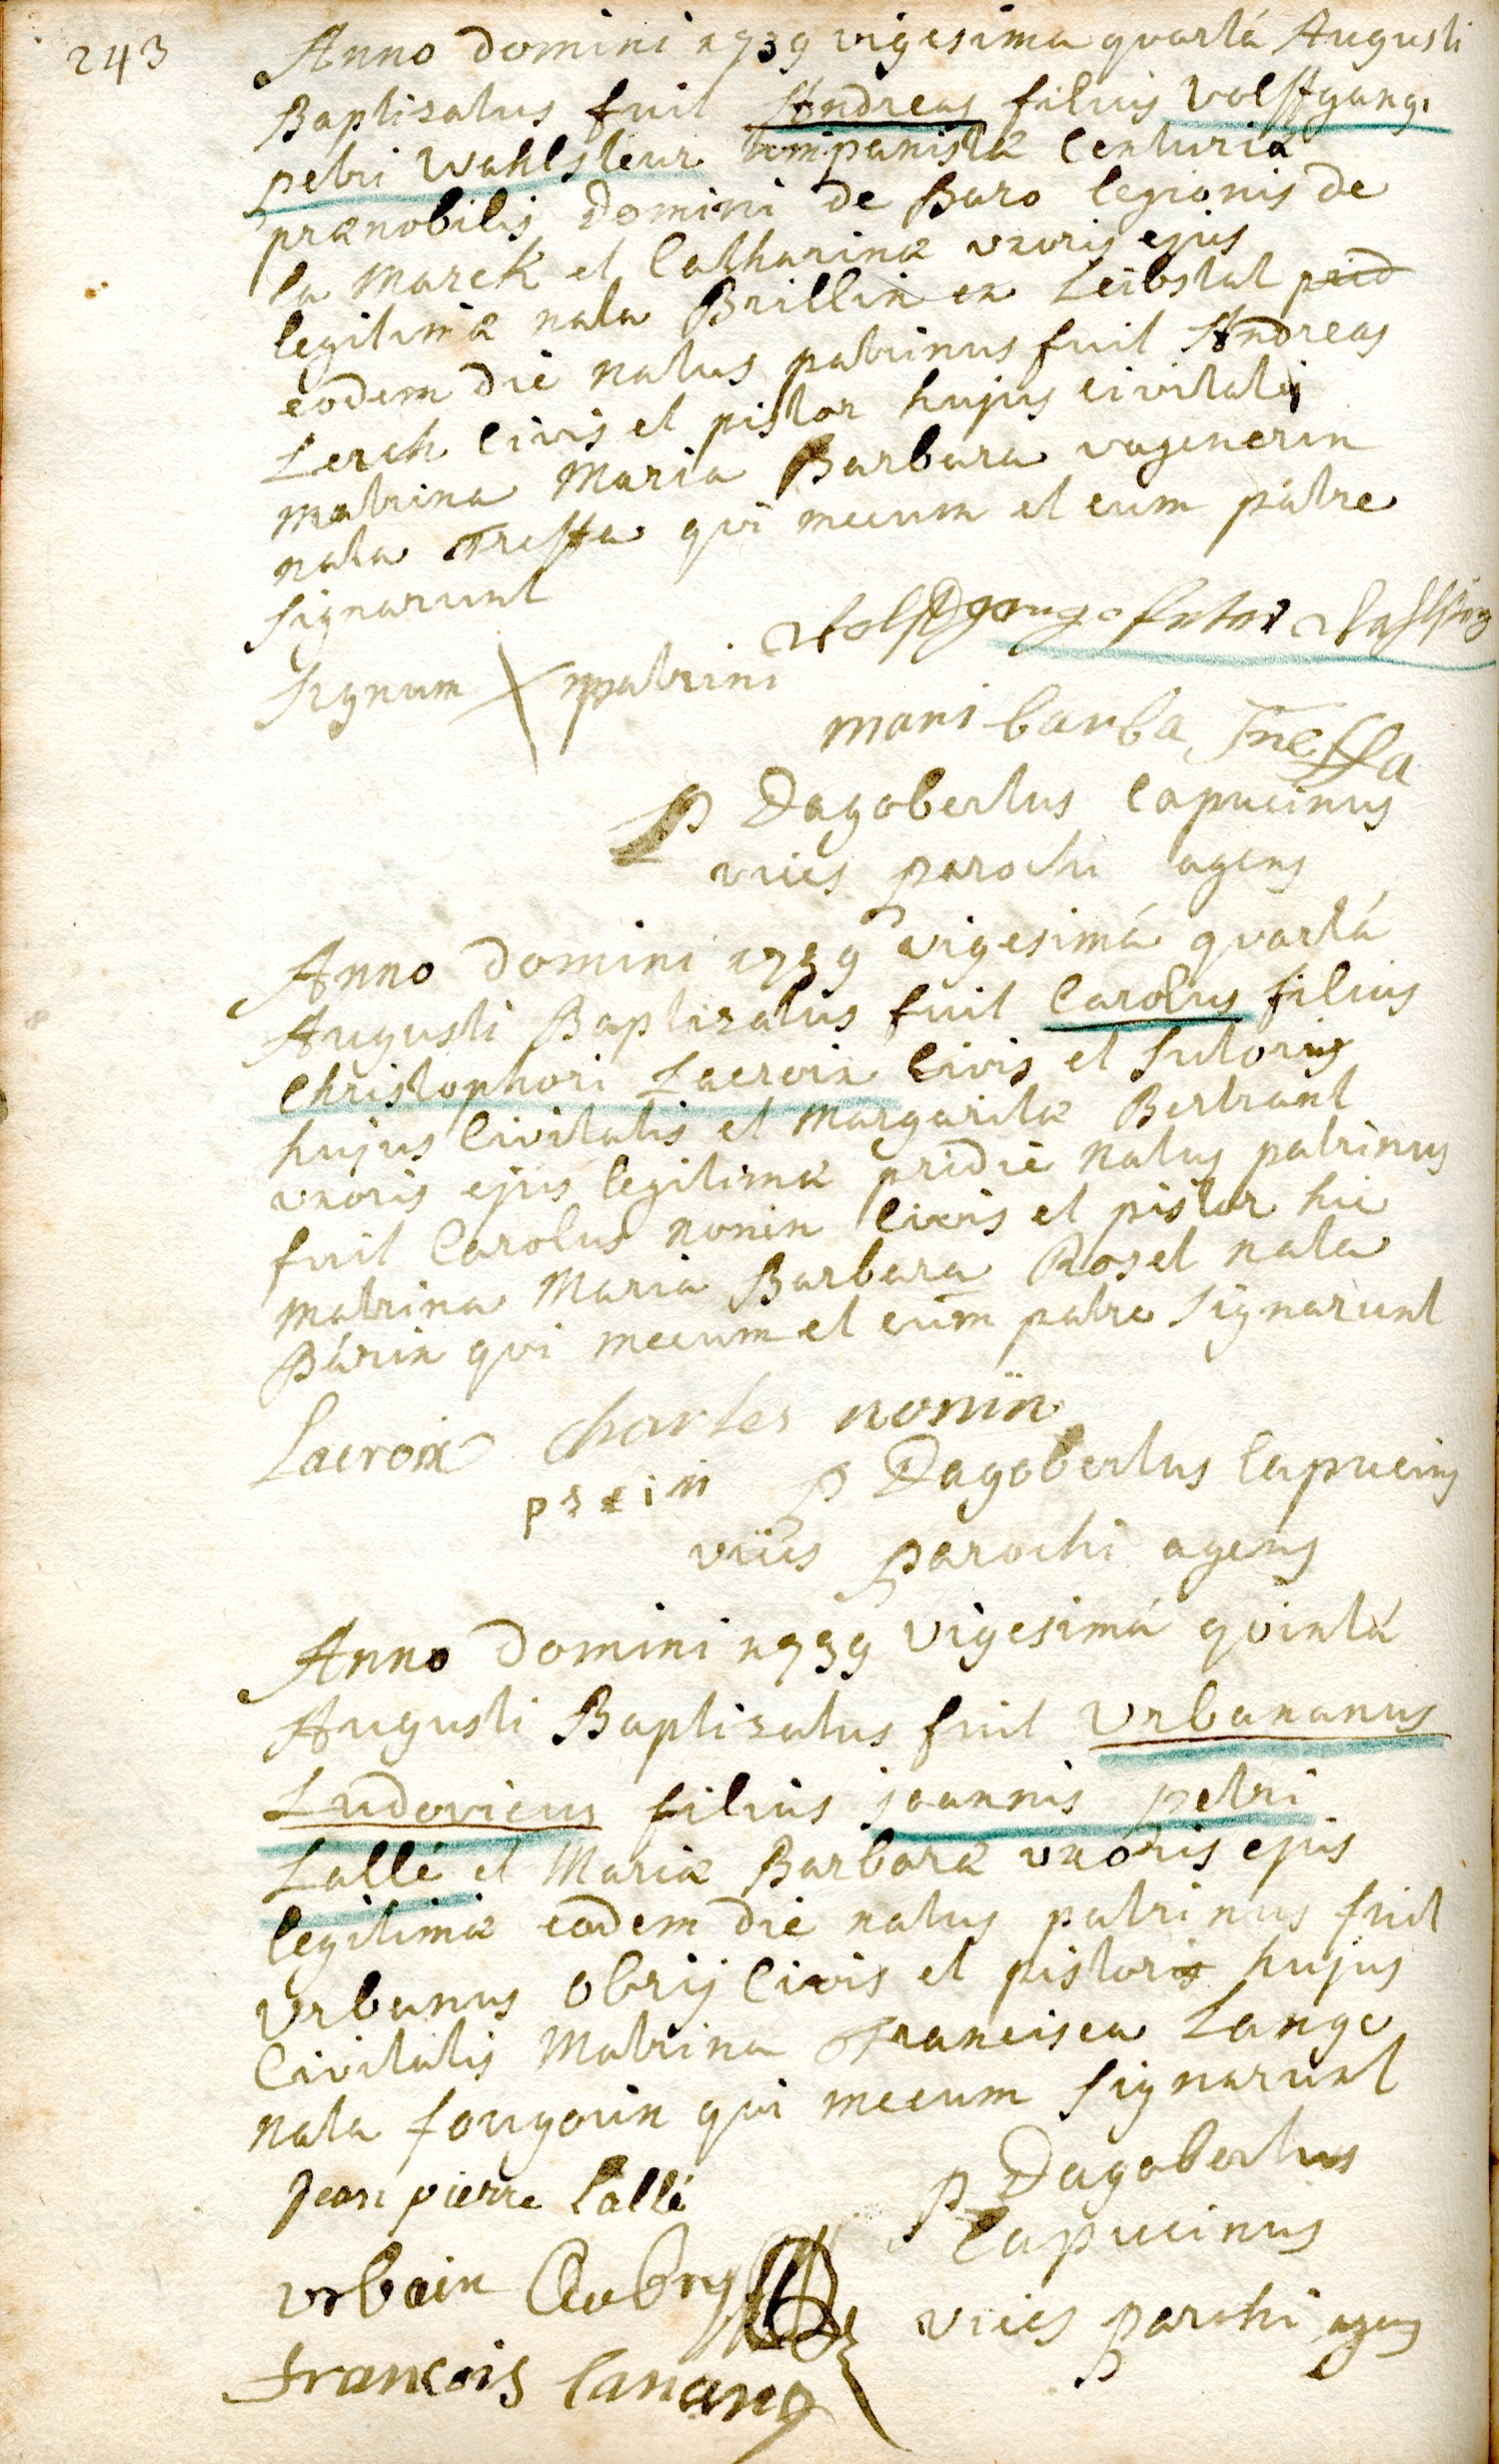 243
Anno domini 1739 vigesima quartá Augusti
Baptisatus fuit Andreas filius Volffgangi
petri Wahlsteur timpanistæ Centuriæ
prænobilis Domini de Buro legionis de
la Marck et Catharinæ uxoris ejus
legitimæ nata Brillin ex Leibstat prid
eodem die natus patrinus fuit Andreas
Lerch Civis et pistor hujus civitatis
matrina Maria Barbara vagenerin
nata Treffa qui mecum et cum patre
signarunt
Wolffgang
Signum patrini
mari barba Treffa
P Dagobertus Capucinus
vices parochi agens
Anno domini 1739 vigesimá quartá
Augusti Baptisatus fuit Carolus filius
Christophori Lacroix Civis et sutoris
hujus Civitatis et Margaritæ Bertrant
uxoris ejus legitimæ pridie natus patrinus
fuit Carolus nonin Civis et pistor hic
matrina Maria Barbara Rosel nata
Párin qui mecum et cum patre signarunt
Lacroix Charles nonin
P Dagobertus Capucinus
vices parochi agens
Anno domini 1739 vigesimá quintá
Augusti Baptisatus fuit Urbananus
Ludovicus filius joannis petri
Lallé et Mariæ Barbaræ uxoris ejus
legitimæ eodem die natus patrinus fuit
Urbanus Obrij Civis et pistoris hujus
Civitatis Matrina Francisca Lange
nata fougouin qui mecum signarunt
Jean pierre Lallé
P Dagobertus
Capucinus
Urbain Aubry
vices parchi agens
francois Lanang